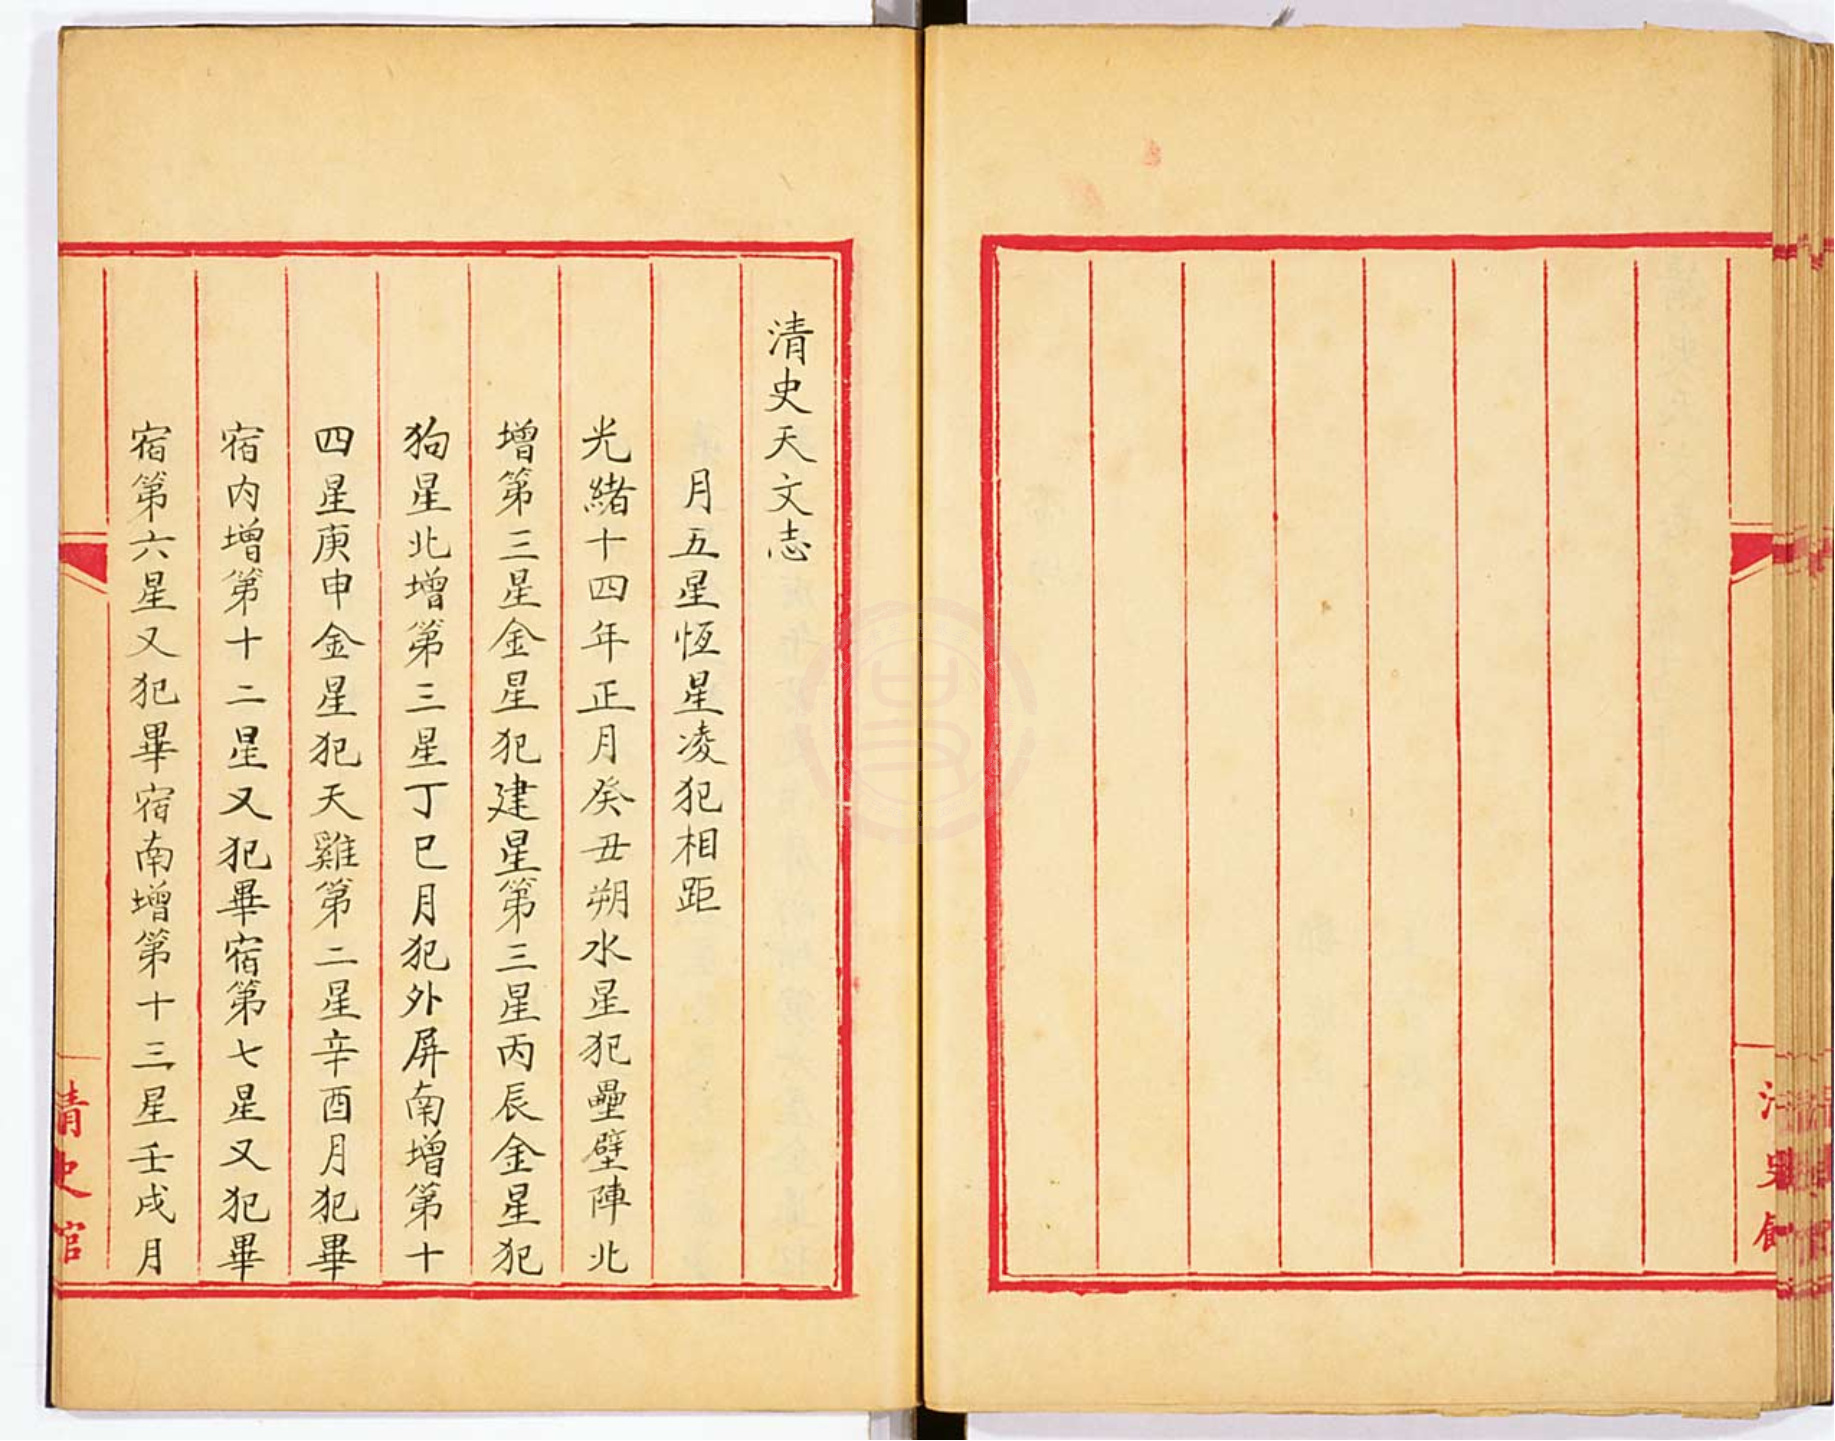 清史天文志
月五星恆星凌犯相距
光緒十四年正月癸丑朔水星犯壘壁陣北
增第三星金星犯建星第三星丙辰金星犯
狗星北增第三星丁巳月犯外屏南增第十
四星庚申金星犯天雞第二星辛酉月犯畢
宿內增第十二星又犯畢宿第七星又犯畢
宿第六星又犯畢宿南增第十三星壬戌月
清史館